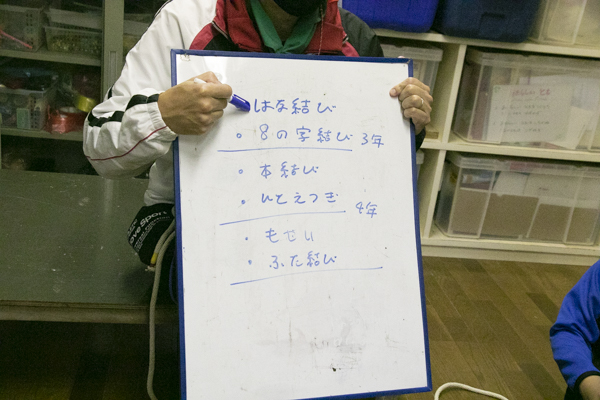 はな結び
・8の字結び 3年
・本結び
・ひとえつぎ 4年
・もやい
・ふた結び